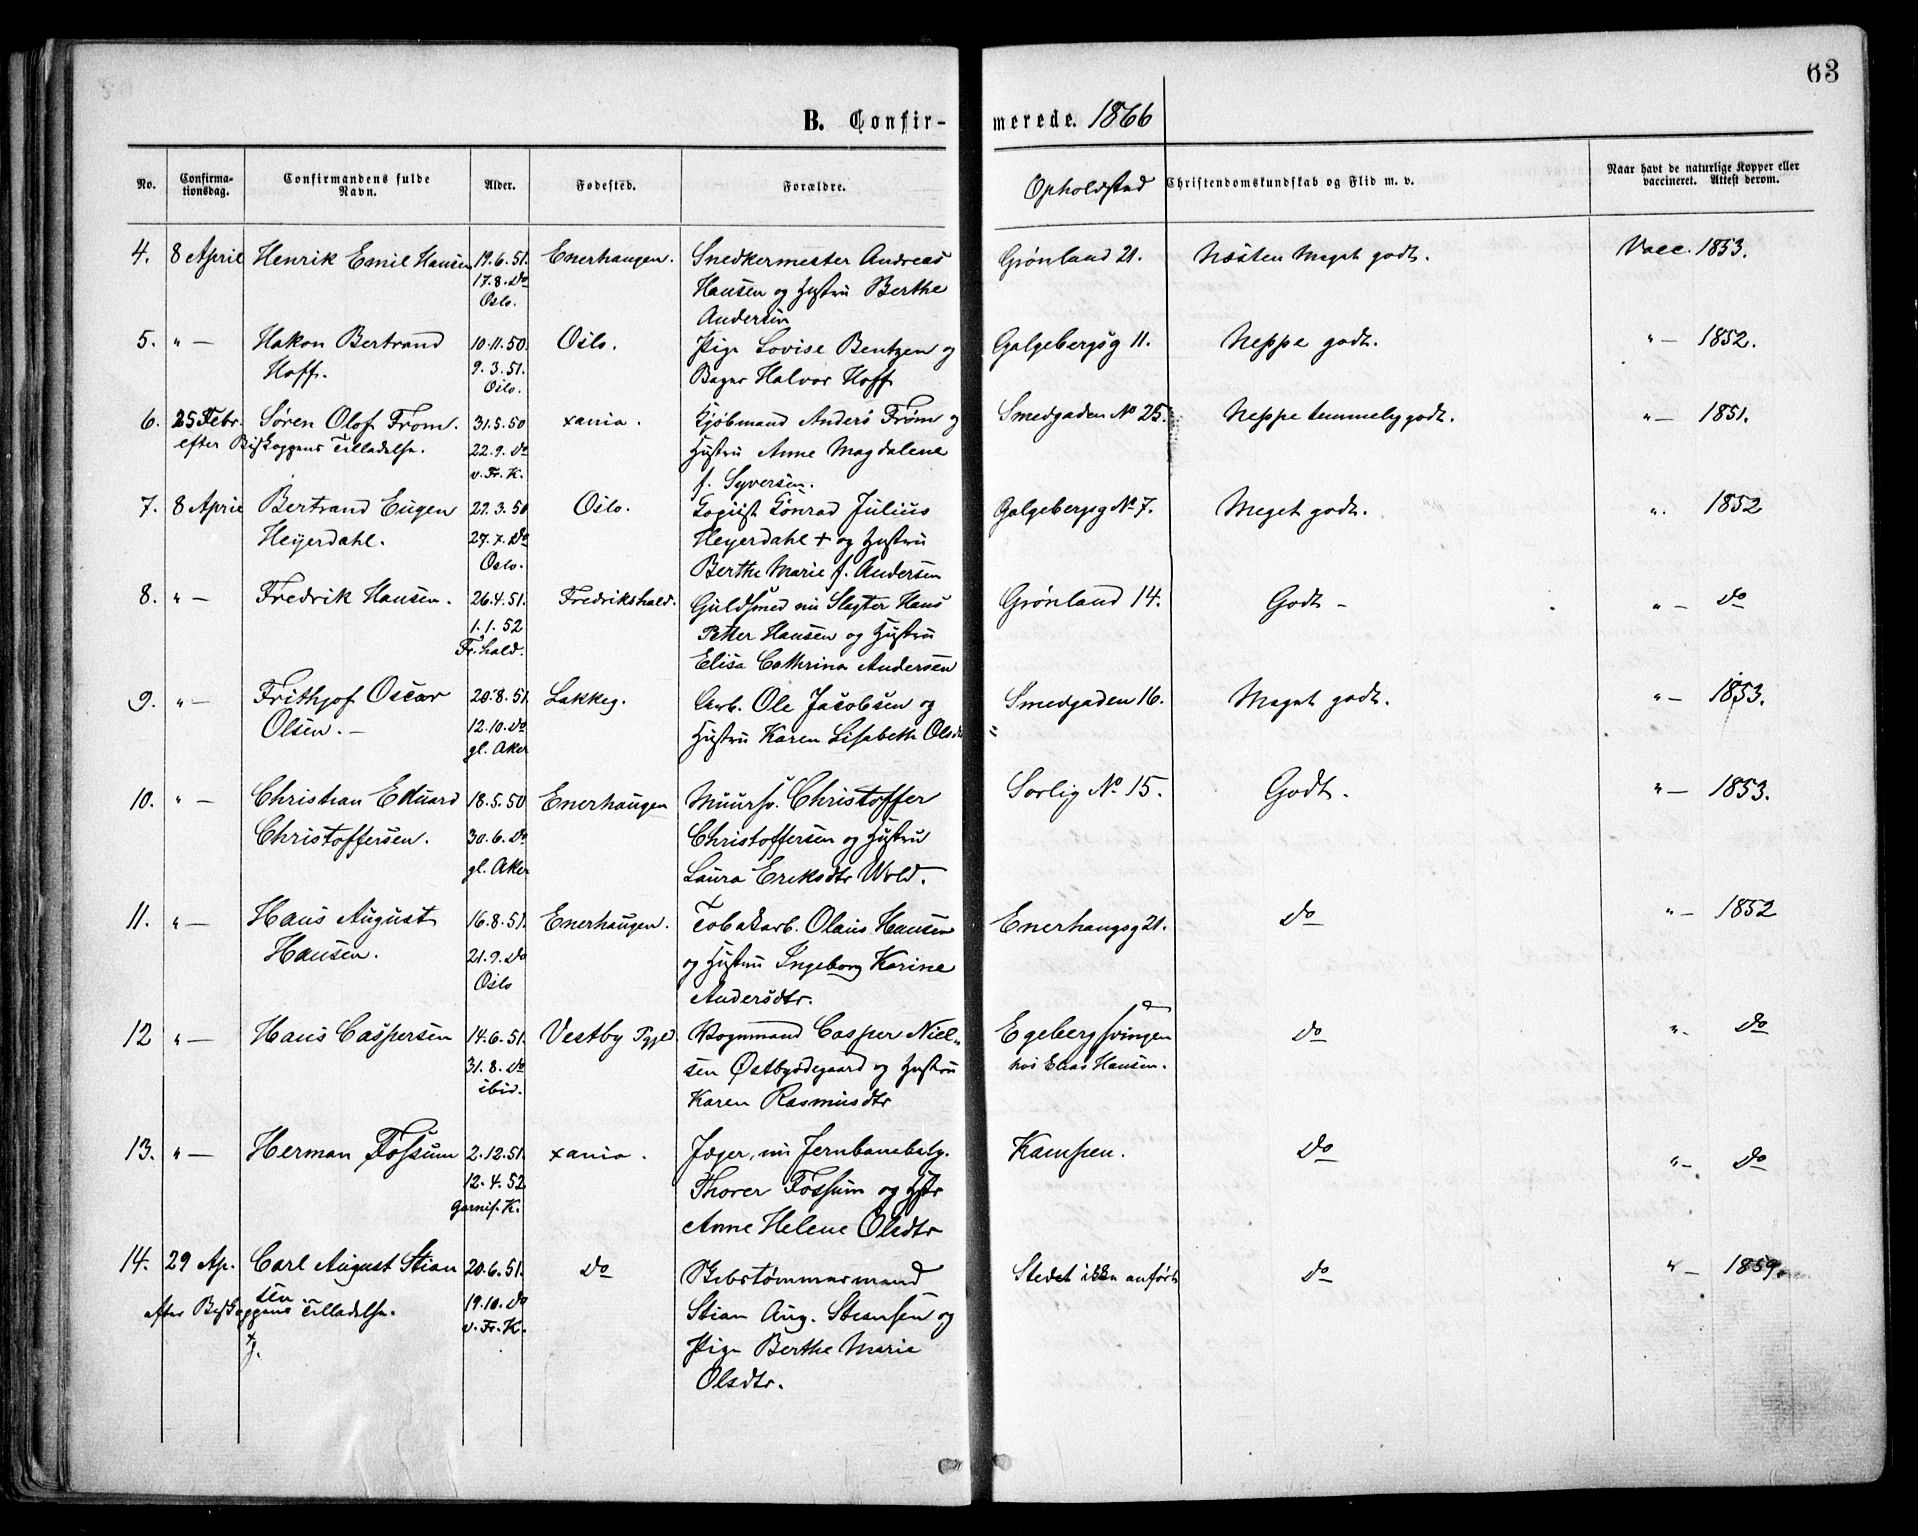 63
B. Confir-merede. 1866
No. Confirma-tionsdag. Confirmandens fulde Navn. Alder. Fødested. Forældre. Opholdsted Christendomskundskab og Flid m. v. Naar havt de naturlige Kopper eller vaccineret. Attest derom.
4. 8 April Henrik Emil Hansen 19.6.51. Enerhaugen. Snedkermester Andreas Grønland 21. Næsten Meget godt. Vacc. 1853.
17.8. Do Hansen og Hustru Berthe
Oslo. Andersen
5. " — Hakon Bertrand 10.11.50. Oslo. Pige Lovise Bentzen og Galgebergsg 11. Neppe godt. " — 1852.
Hoff. 9.3.51. Bager Halvor Hoff
Oslo.
6. 25 Febr. Søren Olof Frøm. 31.5.50 xania. Kjøbmand Anders Frøm og Smedgaden No 25. Neppe temmelig godt. " — 1851.
efter Biskoppens Tilladelse. 22.9. Do Hustru Anne Magdalene
v. Fr. K. f. Syversen.
7. 8 April Bertrand Eugen 22.3.50 Oslo. Conrad Julius Galgebergsg No 7. Meget godt. ". 1852
Heyerdahl. 27.7. Do Heyerdahl + og Hustru
Oslo. Berthe Marie f. Andersen
8. " — Fredrik Hansen. 26.4.51. Fredrikshald. Guldsmed nu Slagter Hans Grønland 14. Godt — " — Do
1.1.52 Petter Hansen og Hustru
Fr.hald. Elisa Cathrina Andersen
9. " — Frithjof Oscar 20.8.51. Lakkeg. Arb. Ole Jacobsen og Smedgaden 16. Meget godt. " — 1853.
Olsen. — 12.10. Do Hustru Karen Lisabeth Olsdr
gl. Aker
10. " — Christian Eduard 18.5.50 Enerhaugen Muursv. Christoffer Sorlig No 15. Godt. " — 1853.
Christoffersen. 30.6. Do Christoffersen og Hustru
gl. Aker Laura Eriksdtr Wold.
11. " — Hans August 16.8.51. Enerhaugen. Tobakarb. Olaus Hansen Enerhaugsg 21. Do " — 1852
Hansen. 21.9. Do og Hustru Ingeborg Karine
Oslo Andersdtr.
12 " — Hans Caspersen 14.6.51. Vestby Pgjld. Vognmand Casper Niel- Egebergsvingen Do ". Do
31.8. Do sen Østbydegaard og Hustru hos Elias Hansen.
ibid. Karen Rasmusdtr
13. " — Herman Fossum 2.12.51. xania. Jæger, nu Jernbanebetj. Kampen. Do " — Do
12.4.52 Thorer Fossum og Hstr
Garnis. K. Anne Helene Olsdtr
14. 29 Ap. Carl August Stian 20.6.51. Do Rebstømmermand Stedet ikke anført Do " — 1859.
sen
efter Biskoppens Tilladelse. 19.10. Do Stian Aug. Stiansen og
v. Fr. K. Pige Berthe Marie
Olsdtr.